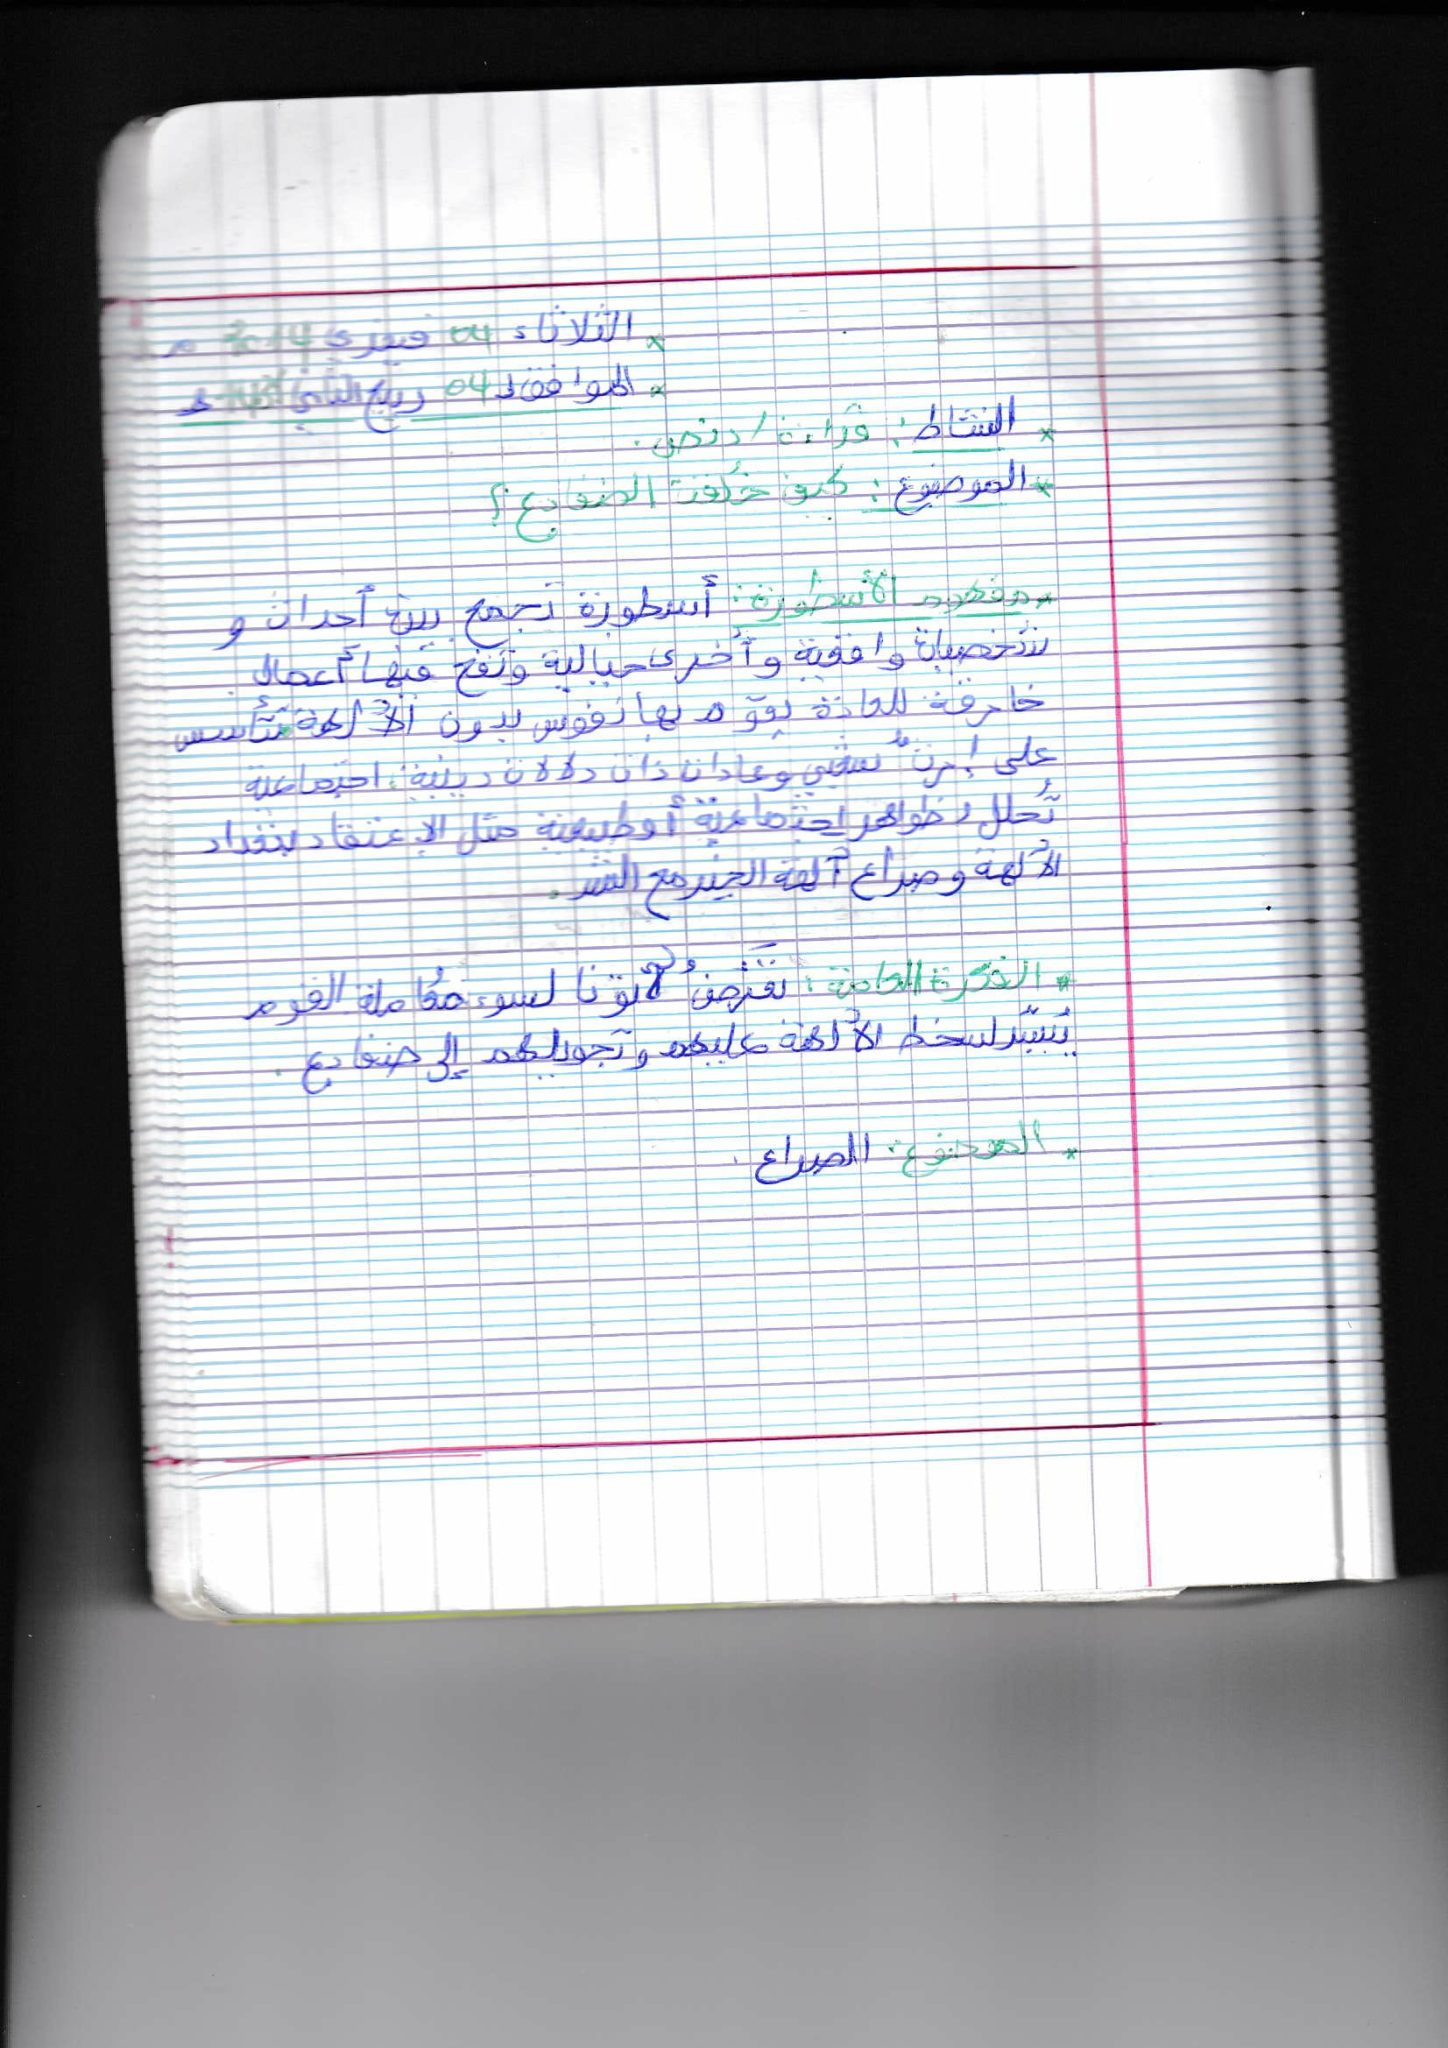 * الثلاثاء 04 فيفري 2014 م
* الموافق لـ 04 ربيع الثاني
* النشاط: قراءة / نص.
* الموضوع: كيف خلقت الضفادع؟
* مفهوم الأسطورة: أسطورة تجمع بين أحداث و
شخصيات واقعية وأخرى خيالية وتقع فيها أعمال
خارقة للعادة يقوم بها نفوس بدون الآلهة تتأسس
على وعادات ذات دلالات دينية، اجتماعية
تُحلل ظواهر إجتماعية أو طبيعية مثل الإعتقاد بتعدد
الآلهة وصراع آلهة الخير مع الشر.
* الفكرة العامة: تعَرُّض لاتونا لسوء مُعاملة القوم
يُسبّب لسخط الآلهة عليهم وتحويلهم إلى ضفادع.
* الموضوع: الصراع.